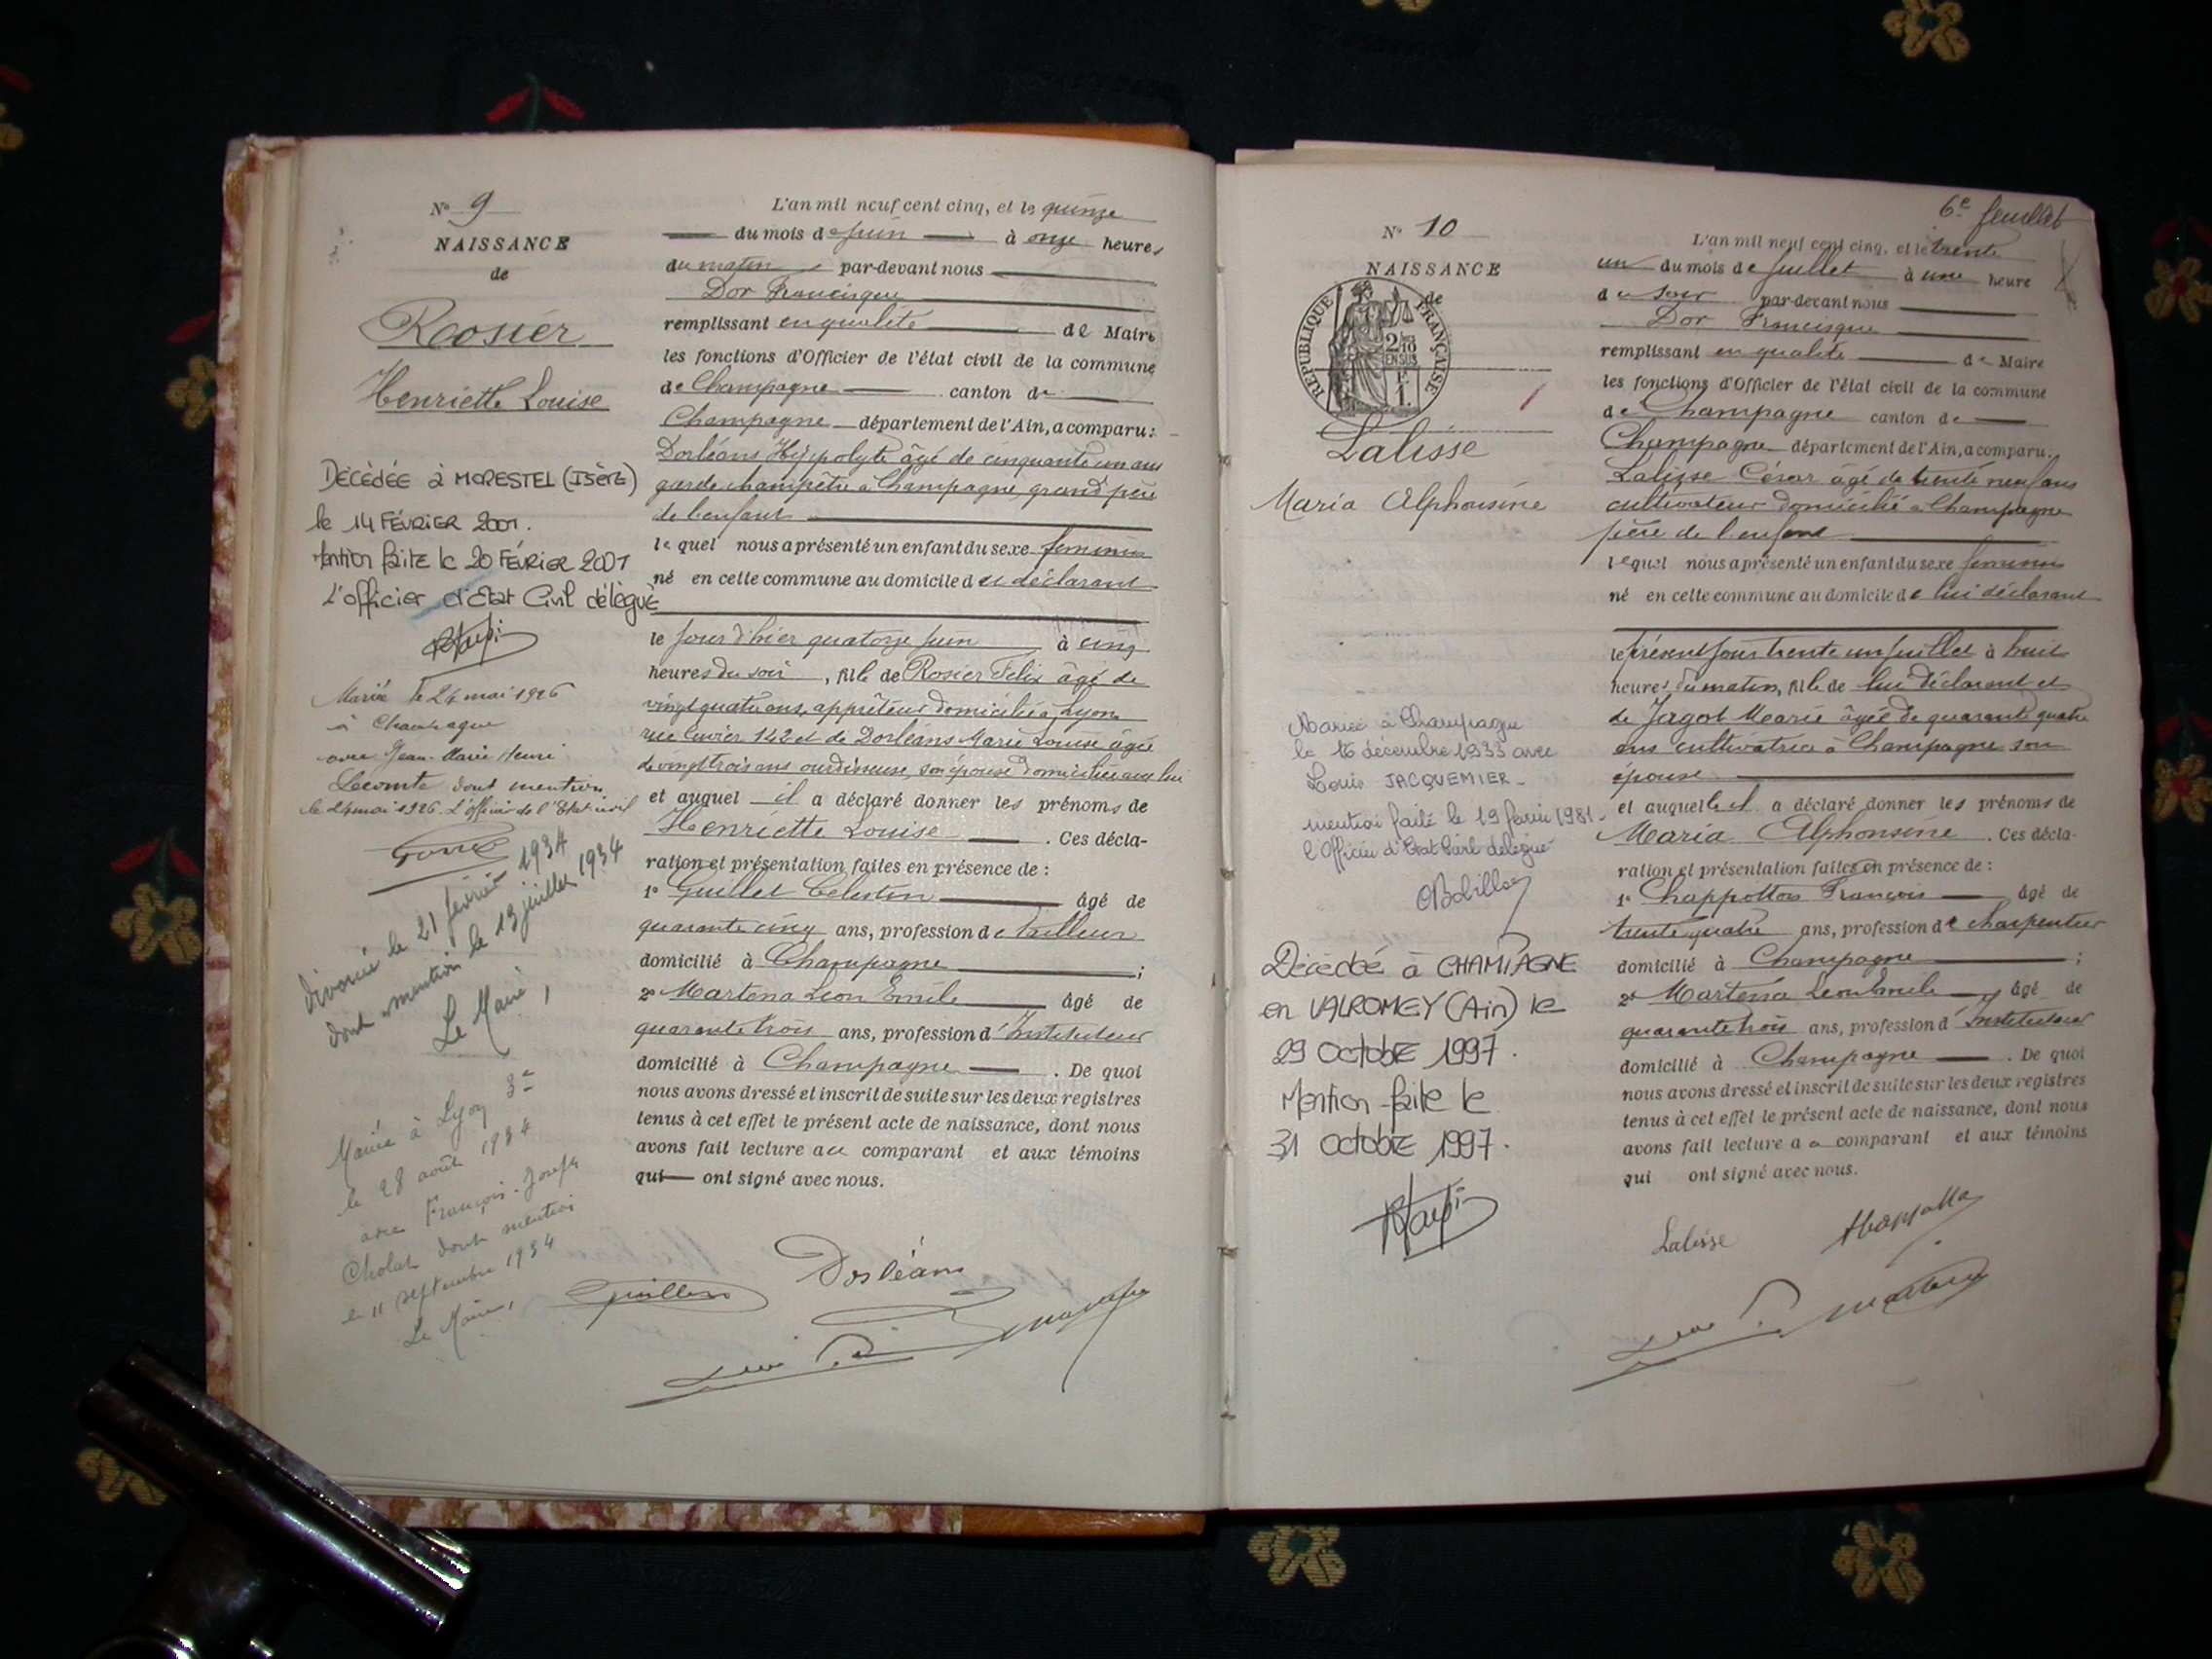 Nº 9
NAISSANCE
de
Rosier
Henriette Louise
DÉCÉDÉE à MORESTEL (ISÈRE)
le 14 FÉVRIER 2001.
Mention faite le 20 FÉVRIER 2001
L'officier d'Etat Civil délégué
Mariée le 24 mai 1926
à Champagne
avec Jean-Marie Henri
Lecomte dont mention
le 24 mai 1926. L'officier de l'Etat civil
divorcée le 21 février 1934
dont mention le 13 juillet 1934
Le Maire,
Mariée à Lyon 3e
le 28 août 1934
avec François-Joseph
Cholat dont mention
le 11 septembre 1934
Le Maire,
L'an mil neuf cent cinq, et le quinze
du mois de juin à onze heures
du matin par-devant nous
Dor Francisque
remplissant en qualité de Maire
les fonctions d'Officier de l'état civil de la commune
de Champagne canton de
Champagne département de l'Ain, a comparu :
Dorléans Hyppolyte âgé de cinquante un ans
garde champêtre à Champagne, grand père
de l'enfant
lequel nous a présenté un enfant du sexe feminin
né en cette commune au domicile du déclarant
le jour d'hier quatorze juin à cinq
heures du soir, fille de Rosier Felix âgé de
vingt quatre ans, apprêteur domicilié à Lyon
rue Cuvier 142 et de Dorléans Marie Louise âgée
de vingt trois ans ourdisseuse, son épouse domiciliée avec lui
et auquel il a déclaré donner les prénoms de
Henriette Louise . Ces décla-
ration et présentation faites en présence de :
1º Guillet Celestin âgé de
quarante cinq ans, profession de tailleur
domicilié à Champagne ;
2º Martena Leon Emile âgé de
quarante trois ans, profession d'Instituteur
domicilié à Champagne . De quoi
nous avons dressé et inscrit de suite sur les deux registres
tenus à cet effet le présent acte de naissance, dont nous
avons fait lecture au comparant et aux témoins
qui ont signé avec nous.
Dorléans
6e feuillet
Nº 10
NAISSANCE
de
REPUBLIQUE FRANÇAISE
2/10
EN SUS
1 F.
Lalisse
Maria Alphonsine
Mariée à Champagne
le 16 décembre 1933 avec
Louis JACQUEMIER -
mention faite le 19 février 1981 -
l'Officier d'Etat Civil délégué
Décédée à CHAMPAGNE
en VALROMEY (Ain) le
29 octobre 1997.
Mention faite le
31 octobre 1997.
L'an mil neuf cent cinq, et le trente
un du mois de Juillet à une heure
du soir par-devant nous
Dor Francisque
remplissant en qualité de Maire
les fonctions d'Officier de l'état civil de la commune
de Champagne canton de
Champagne département de l'Ain, a comparu :
Lalisse César âgé de trente neuf ans
cultivateur domicilié à Champagne
père de l'enfant
lequel nous a présenté un enfant du sexe feminin
né en cette commune au domicile de lui déclarant
le présent jour trente un juillet à huit
heures du matin, fille de lui déclarant et
de Jagot Marie âgée de quarante quatre
ans cultivatrice à Champagne son
épouse
et auquel il a déclaré donner les prénoms de
Maria Alphonsine . Ces décla-
ration et présentation faites en présence de :
1º Chappottas François âgé de
trente quatre ans, profession de charpentier
domicilié à Champagne ;
2º Martena Leon Emile âgé de
quarante trois ans, profession d'Instituteur
domicilié à Champagne . De quoi
nous avons dressé et inscrit de suite sur les deux registres
tenus à cet effet le présent acte de naissance, dont nous
avons fait lecture au comparant et aux témoins
qui ont signé avec nous.
Lalisse